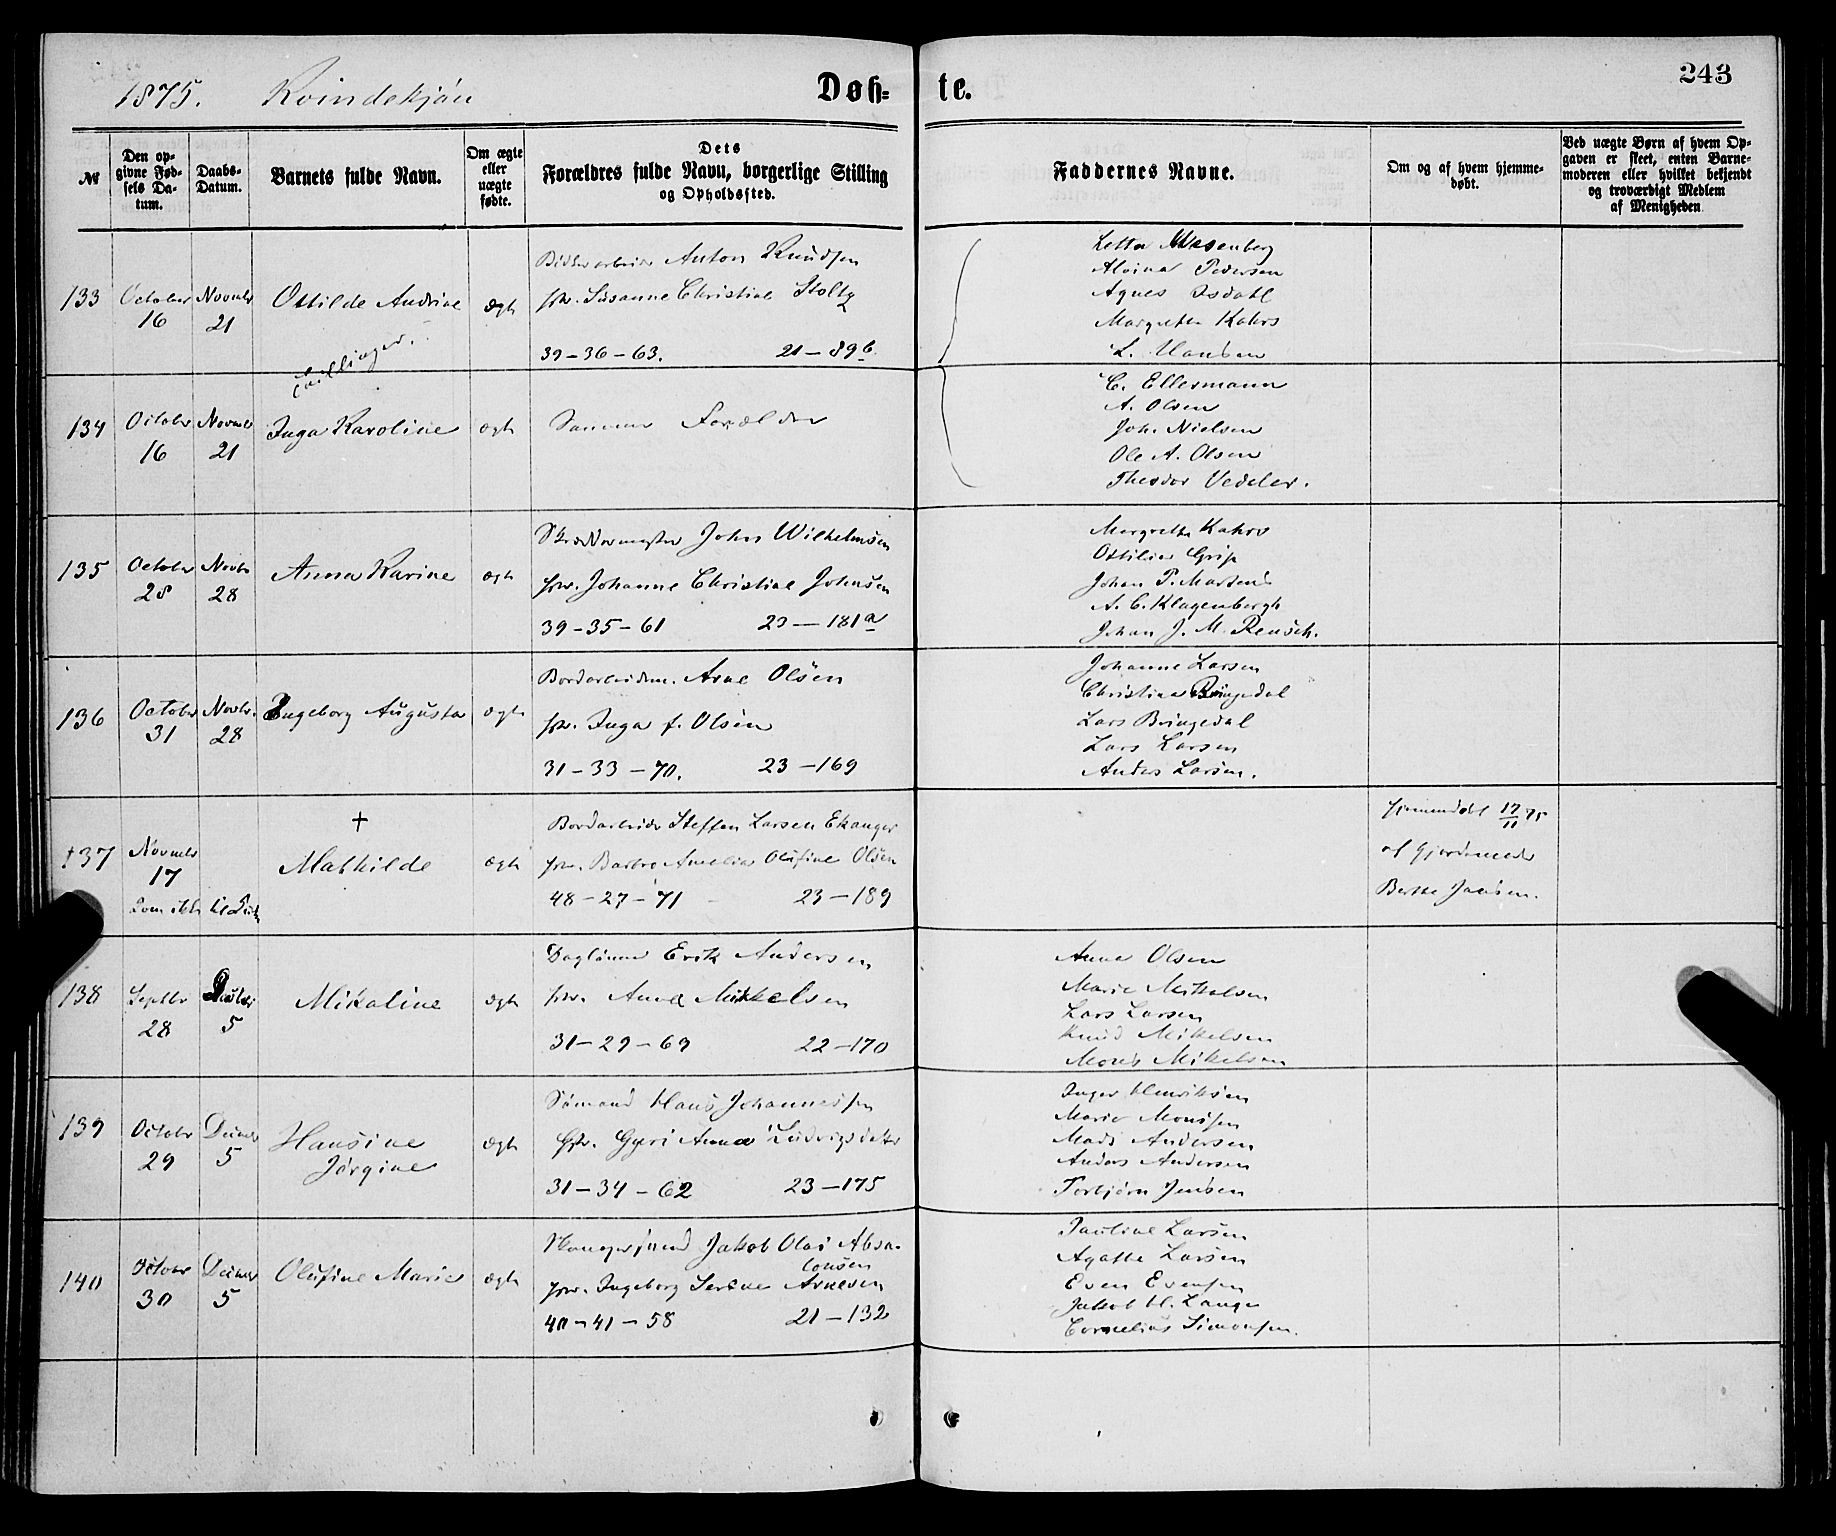 1875. Kvindekjön
Døb-
te.
243
№
Den op-
givne Fød-
sels Da-
tum.
Daabs-
Datum.
Barnets fulde Navn.
Om ægte
eller
uægte
fødte.
Dets
Forældres fulde Navn, borgerlige Stilling
og Opholdssted.
Faddernes Navne.
Om og af hvem hjemme-
døbt.
Ved uægte Børn af hvem Op-
gaven er skeet, enten Barne-
moderen eller hvilket bekjendt
og troværdigt Medlem
af Menigheden
133
October
16
Novmbr
21
Ottilde Andrine
Tvillinger.
ægte
Anton Knudsen
Hu. Susanne Christine Stoltz
39-36-63. 21-89b
Alvina Pedersen
Agnes Isdahl
Margrethe Kahrs
L. Hansen
134
October
16
Novmbr
21
Inga Karoline
ægte
Samme Forældre
C. Ellesmann
A. Olsen
Joh. Nielsen
Ole A. Olsen
Theodor Vedeler.
135
October
28
Novbr
28
Anna Karine
ægte
Skræddermester John Wilhelmsen
Hu. Johanne Christine Johnsen
39-35-61 23-181a
Margrethe Kahrs
Ottilie Grip
Johan P. Martens
A. C. Klagenbergh
Johan J. M. Reusch.
136
October
31
Novbr.
28
Ingeborg Augusta
ægte
Bordarbeidm. Arne Olsen
Hu. Inga f. Olsen
31-33-70. 23-169
Johanne Larsen
Christine Bringedal
Lars Bringedal
Lars Larsen
Anders Larsen.
137
Novmbr
17
Kom ikke til Kirke
†
Mathilde
ægte
Bordarbeider Steffen Larsen Ekanger
Hu. Barbro Amelia Olufine Olsen
48-27-71 23-189
Hjemmedøbt 17/11 75
af Gjordemoder
Berthe Jansen.
138
Septbr
28
Decmbr
5
Mikaline
ægte
Daglönner Erik Andersen
Hu. Anna Mikkelsen
31-29-69 22-170
Anna Olsen
Marie Mikkelsen
Lars Larsen
Knud Mikelsen
Mons Mikelsen
139
October
29
Decmbr
5
Hansine
Jørgine
ægte
Sömand Hans Johannessen
Hu. Gyri Anna Ludvigsdatter
31-34-62 23-175
Inger Henriksen
Marie Monssen
Mads Andersen
Anders Andersen
Torbjørn Jensen
140
October
30
Decmbr
5
Olufine Marie
ægte
Jakob Olai Absa-
lonsen
Hu. Ingeborg Serine Arnesen
40-41-58 21-132
Pauline Larsen
Agathe Larsen
Even Evensen
Jakob H. Lange
Cornelius Simonsen.